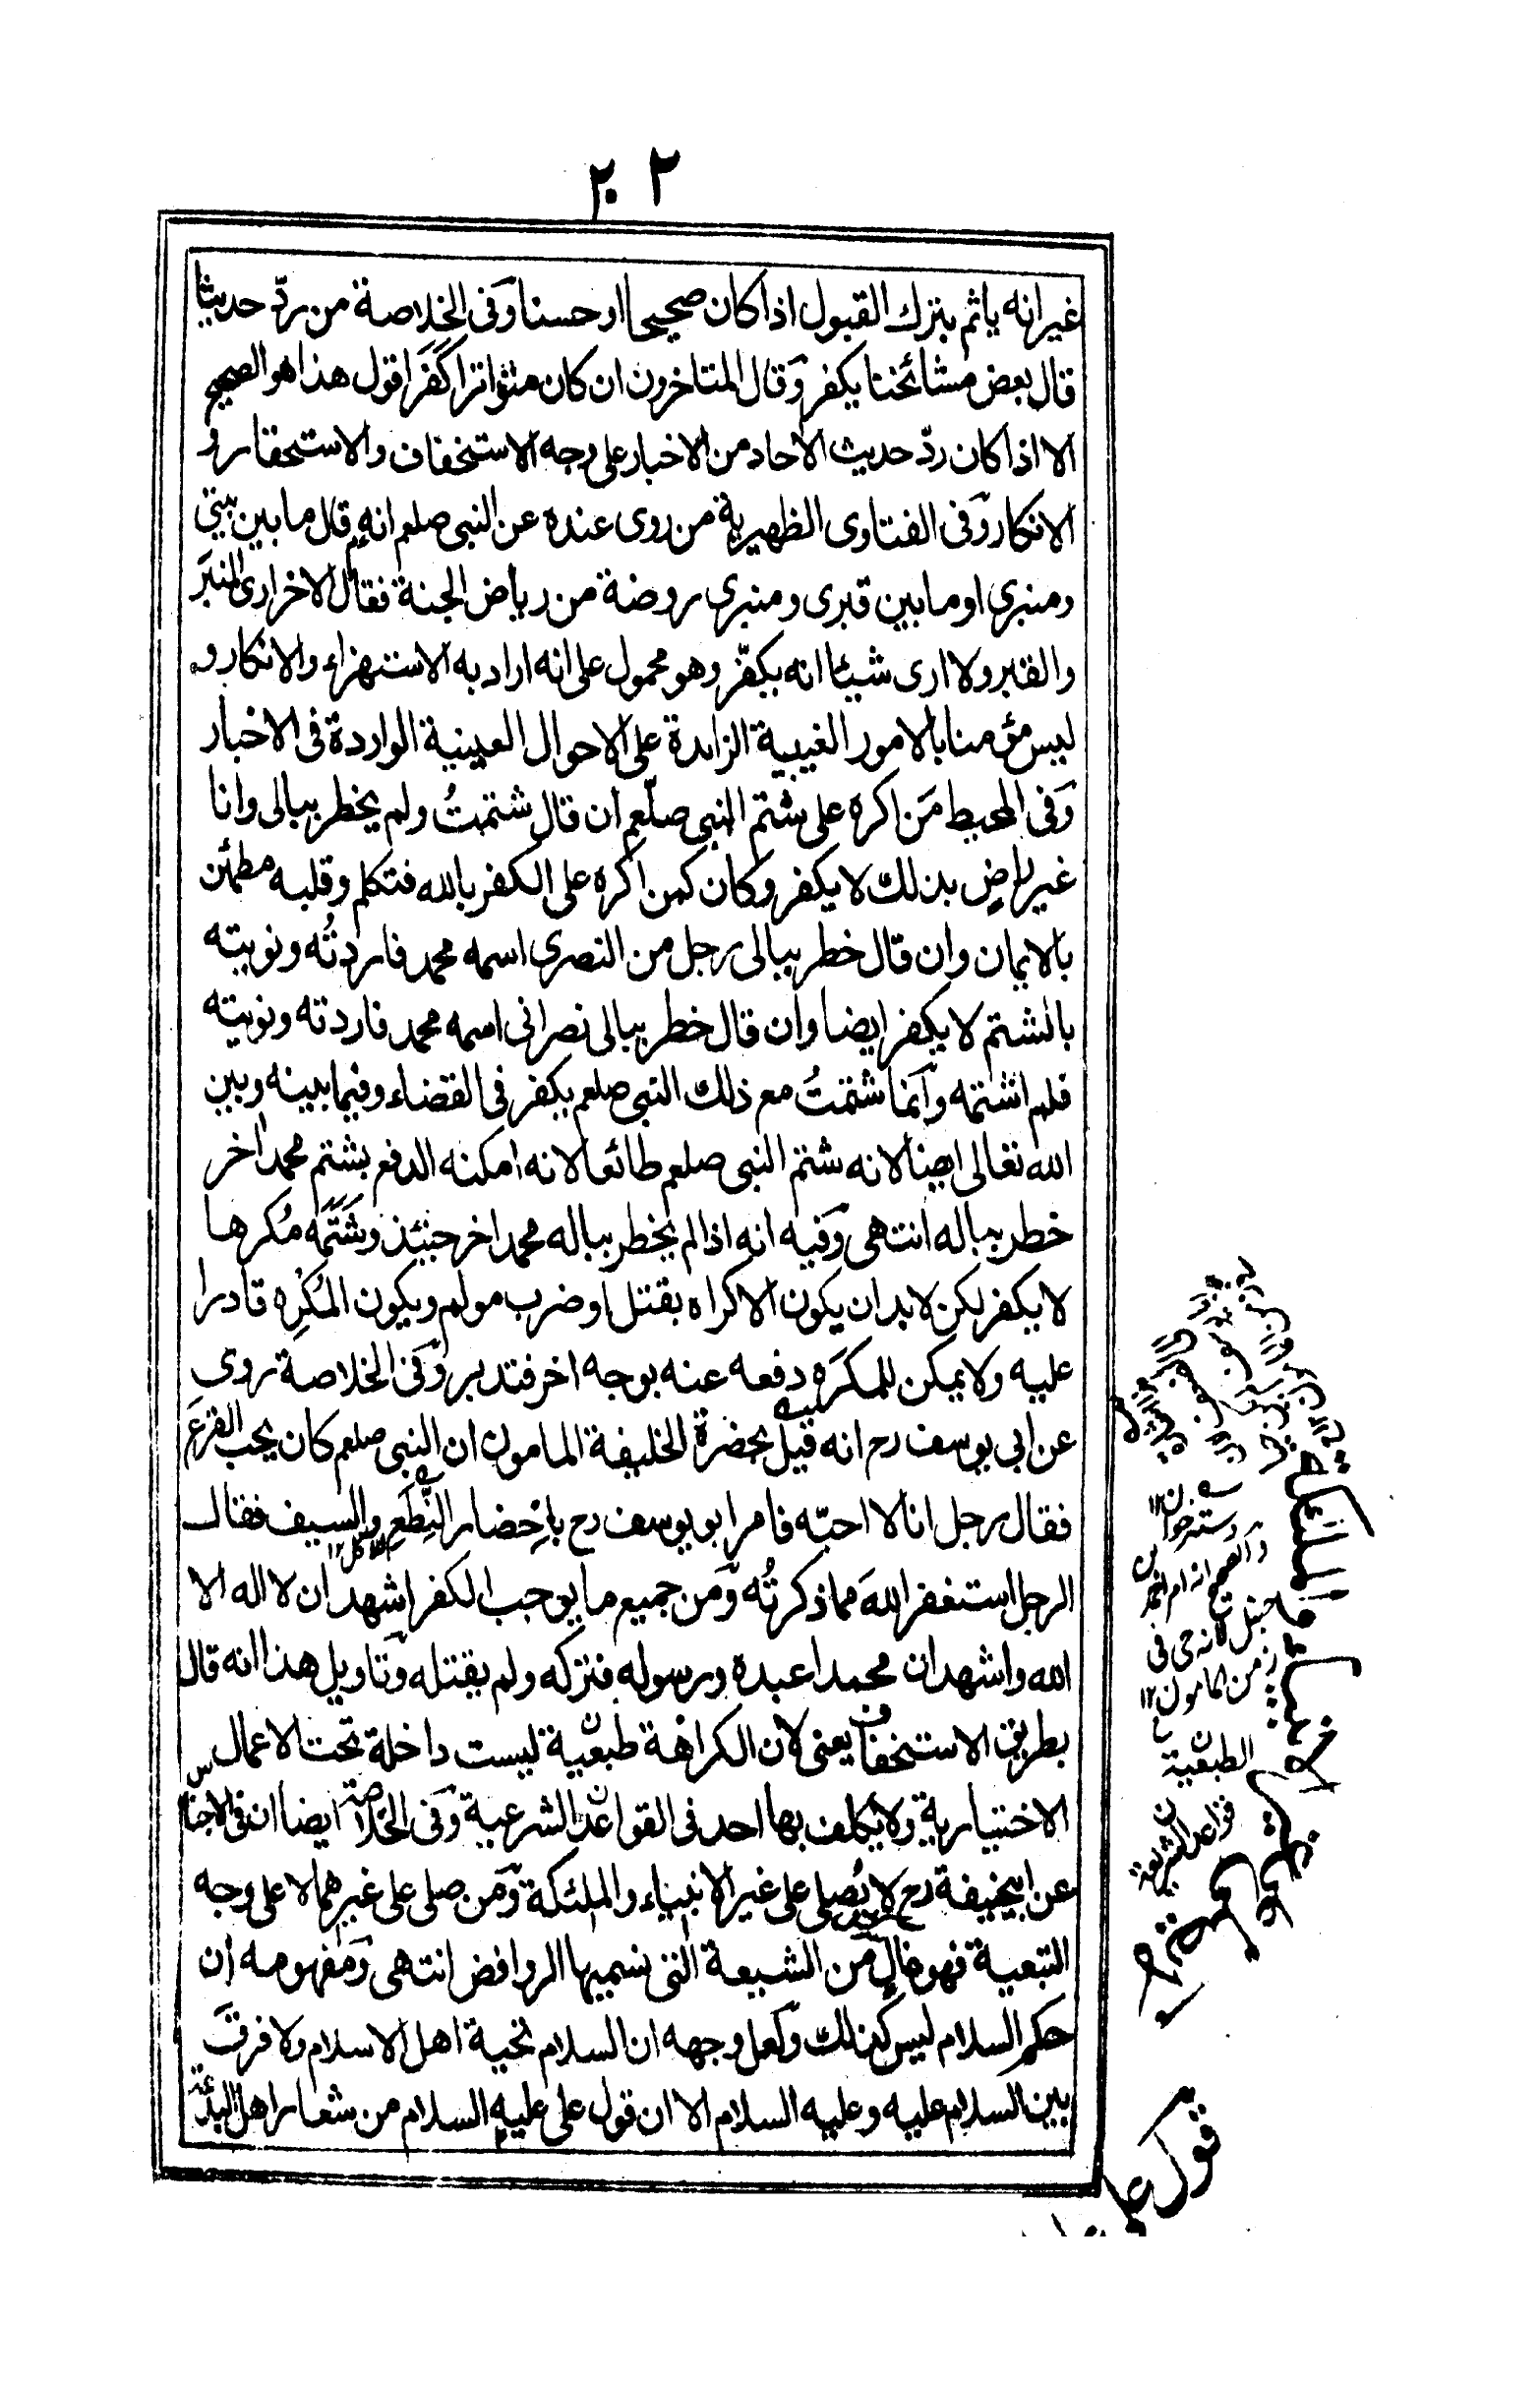 ٢٠٢
غير انه ياثم بترك القبول اذا كان صحيحا او حسنا وفى الخلاصة من ردّ حديثا
قال بعض مشائخنا يكفر وقال المتاخرون ان كان متواترا كفر اقول هذا هو الصحيح
الا اذا كان ردّ حديث الاحاد من الاخبار على وجه الاستخفاف والاستحقار و
الانكار وفى الفتاوى الظهيرية من روى عنده عن النبى صلعم انه قال ما بين بيتى
ومنبرى او ما بين قبرى ومنبرى روضة من رياض الجنة فقال الاخر ارى المنبر
والقبر ولا ارى شيئا انه يكفر وهو محمول على انه اراد به الاستهزاء والانكار و
ليس مؤمنا بالامور الغيبية الزايدة على الاحوال العينية الواردة فى الاخبار
وفى المحيط من اكره على شتم النبى صلعم ان قال شتمتُ ولم يخطر ببالى وانا
غير راضٍ بذلك لا يكفر وكان كمن اكره على الكفر بالله فتكلم وقلبه مطمئن
بالايمان وان قال خطر ببالى رجل من النصرى اسمه محمد فاردتُه ونويته
بالشتم لا يكفر ايضا وان قال خطر ببالى نصرانى اسمه محمد فاردته ونويته
فلم اشتمه وانما شتمتُ مع ذلك النبى صلعم يكفر فى القضاء وفيما بينه وبين
الله تعالى ايضا لانه شتم النبى صلعم طائعا لانه امكنه الدفع بشتم محمد اخر
خطر بباله انتهى وفيه انه اذا لم يخطر بباله محمد اخر حينئذ وشَتَمَه مُكرها
لا يكفر لكن لا بد ان يكون الاكراه بقتل او ضرب مولم ويكون المُكرِه قادرا
عليه ولا يمكن للمكرَه دفعه عنه بوجه اخر فتدبر وفى الخلاصة روى
عن ابى يوسف رح انه قيل بحضرة الخليفة المامون ان النبى صلعم كان يحب القرع
فقال رجل انا لا احبّه فامر ابو يوسف رح بِاحضار النِّطَعِ والسيف فقال
الرجل استغفر اللهَ مما ذكرتُه ومن جميع ما يوجب الكفر اشهد ان لا اله الا
الله واشهد ان محمدا عبده ورسوله فتركه ولم يقتله وتاويل هذا انه قال
بطريق الاستخفاف يعنى لان الكراهة طبعية ليست داخلة تحت الاعمال
الاختيارية ولا يكلف بها احد فى القواعد الشرعية وفى الخلاصة ايضا ان فى الاجناس
عن ابيحنيفة رح لا يُصلى على غير الانبياء والملئكة ومن صلى على غيرهما لا على وجه
التبعية فهو غالٍ من الشيعة التى نسميها الروافض انتهى ومفهومه ان
حكم السلام ليس كذلك ولعل وجهه ان السلام تحية اهل الاسلام ولا فرق
بين السلام عليه وعليه السلام الا ان قول على عليه السلام من شعار اهل البدعة
والصحيح انه امر احمد بن
حنبل لانه حى فى
زمن مامون ١٢
الطبعية ن
قواعد الشريعة ن